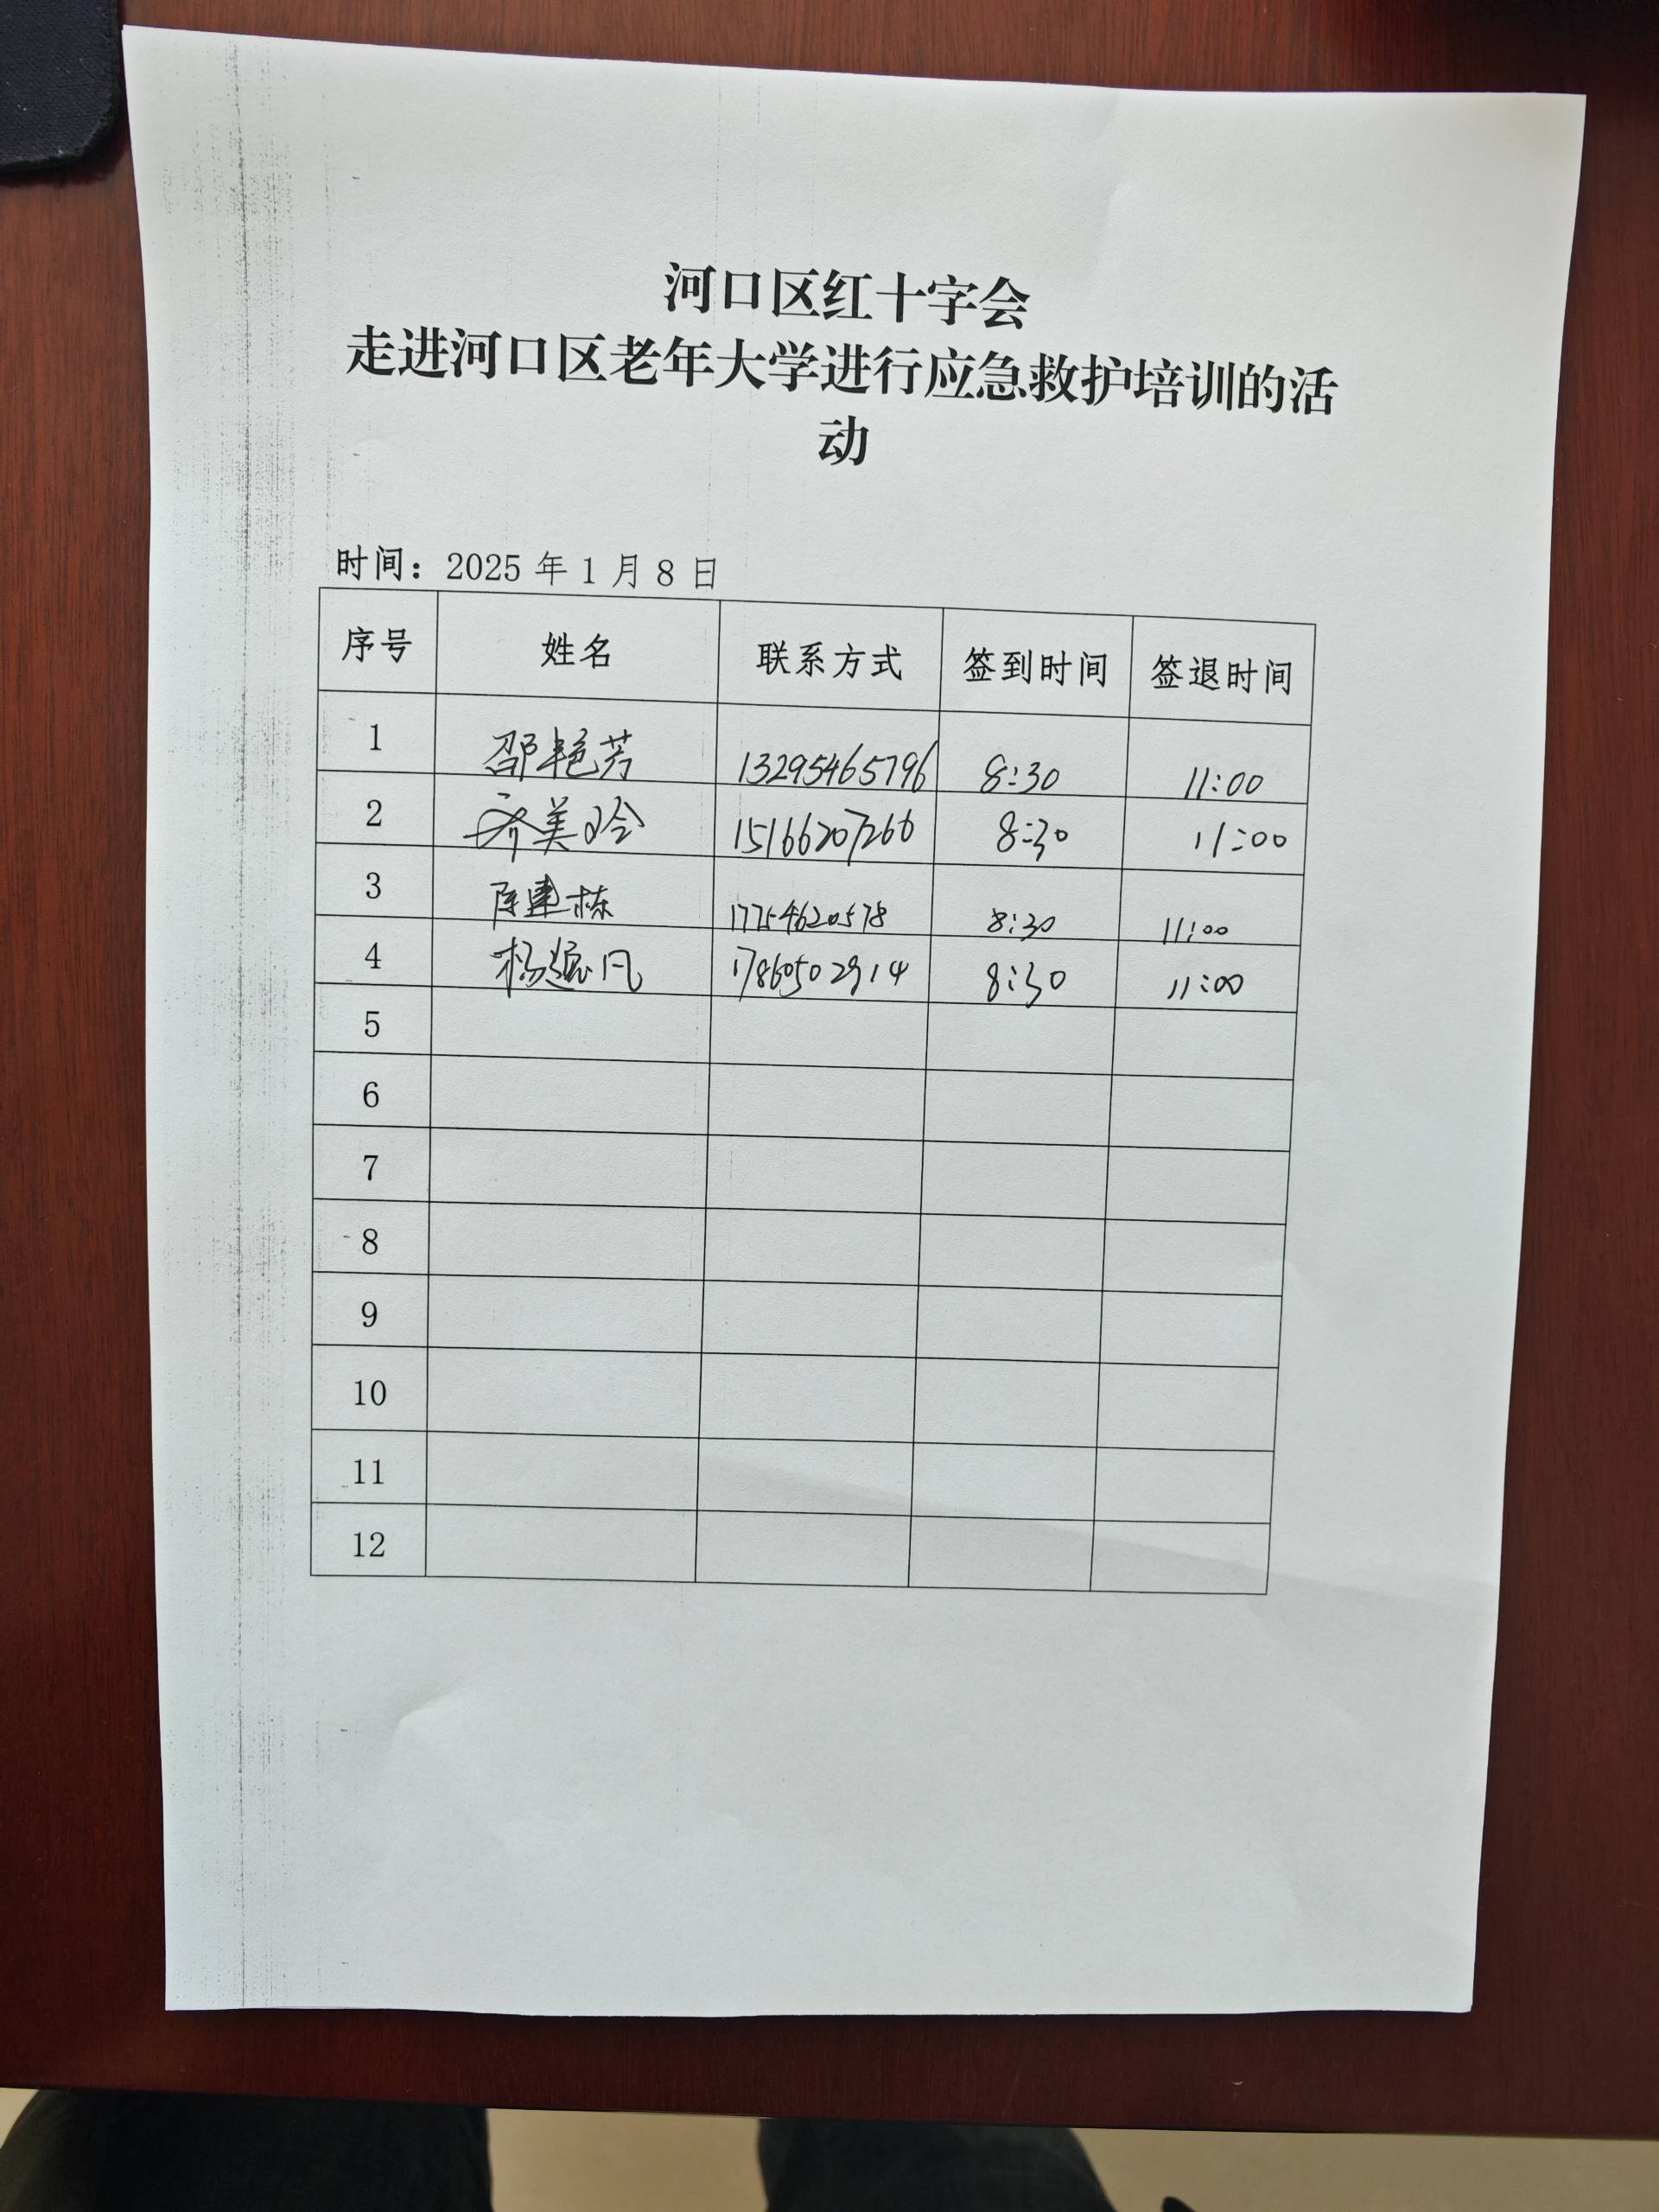 河口区红十字会
走进河口区老年大学进行应急救护培训的活
动
时间：2025 年 1 月 8 日
序号 姓名 联系方式 签到时间 签退时间
1 邵艳芳 13295465796 8:30 11:00
2 齐美玲 15166207266 8:30 11:00
3 陈建栋 17754620578 8:30 11:00
4 杨振凡 17860502914 8:30 11:00
5
6
7
8
9
10
11
12